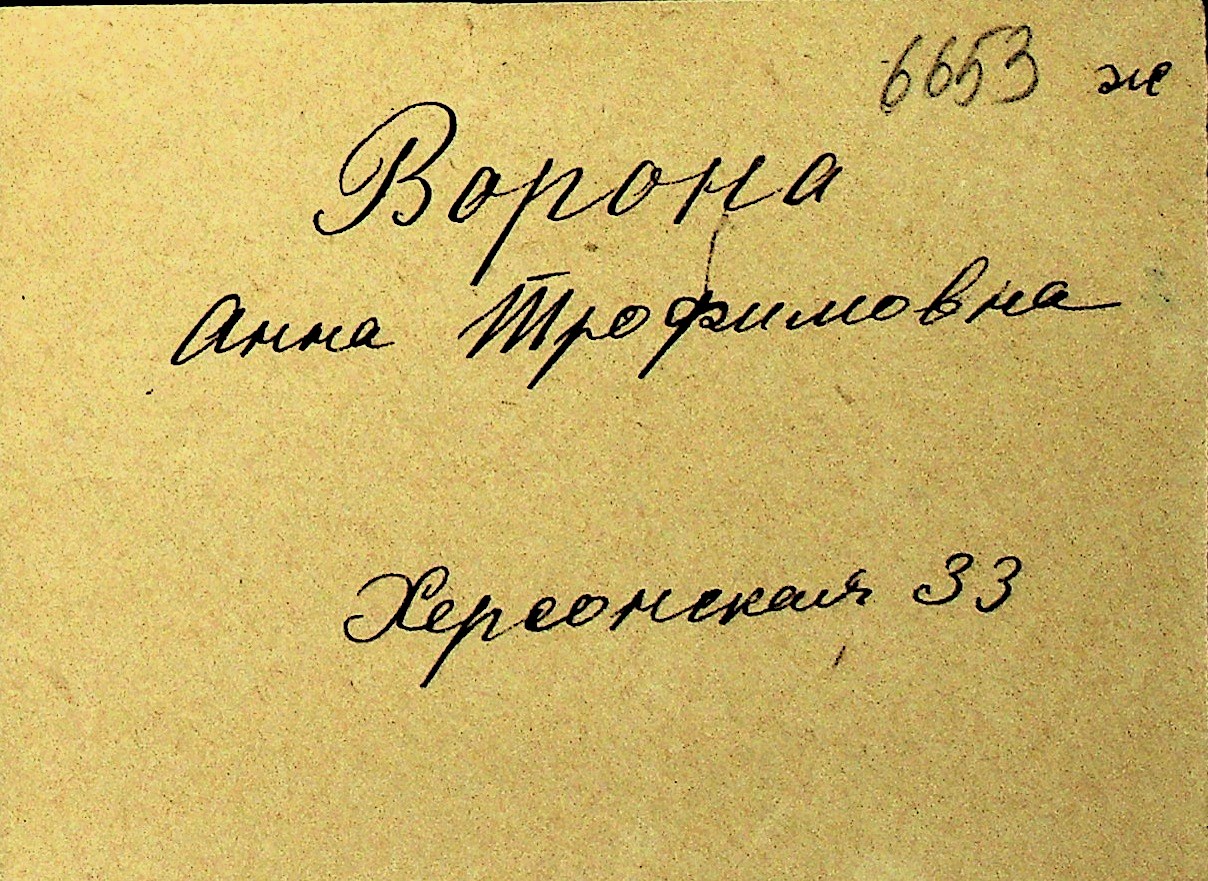 6653 ж
Ворона
Анна Трофимовна
Херсонская 33